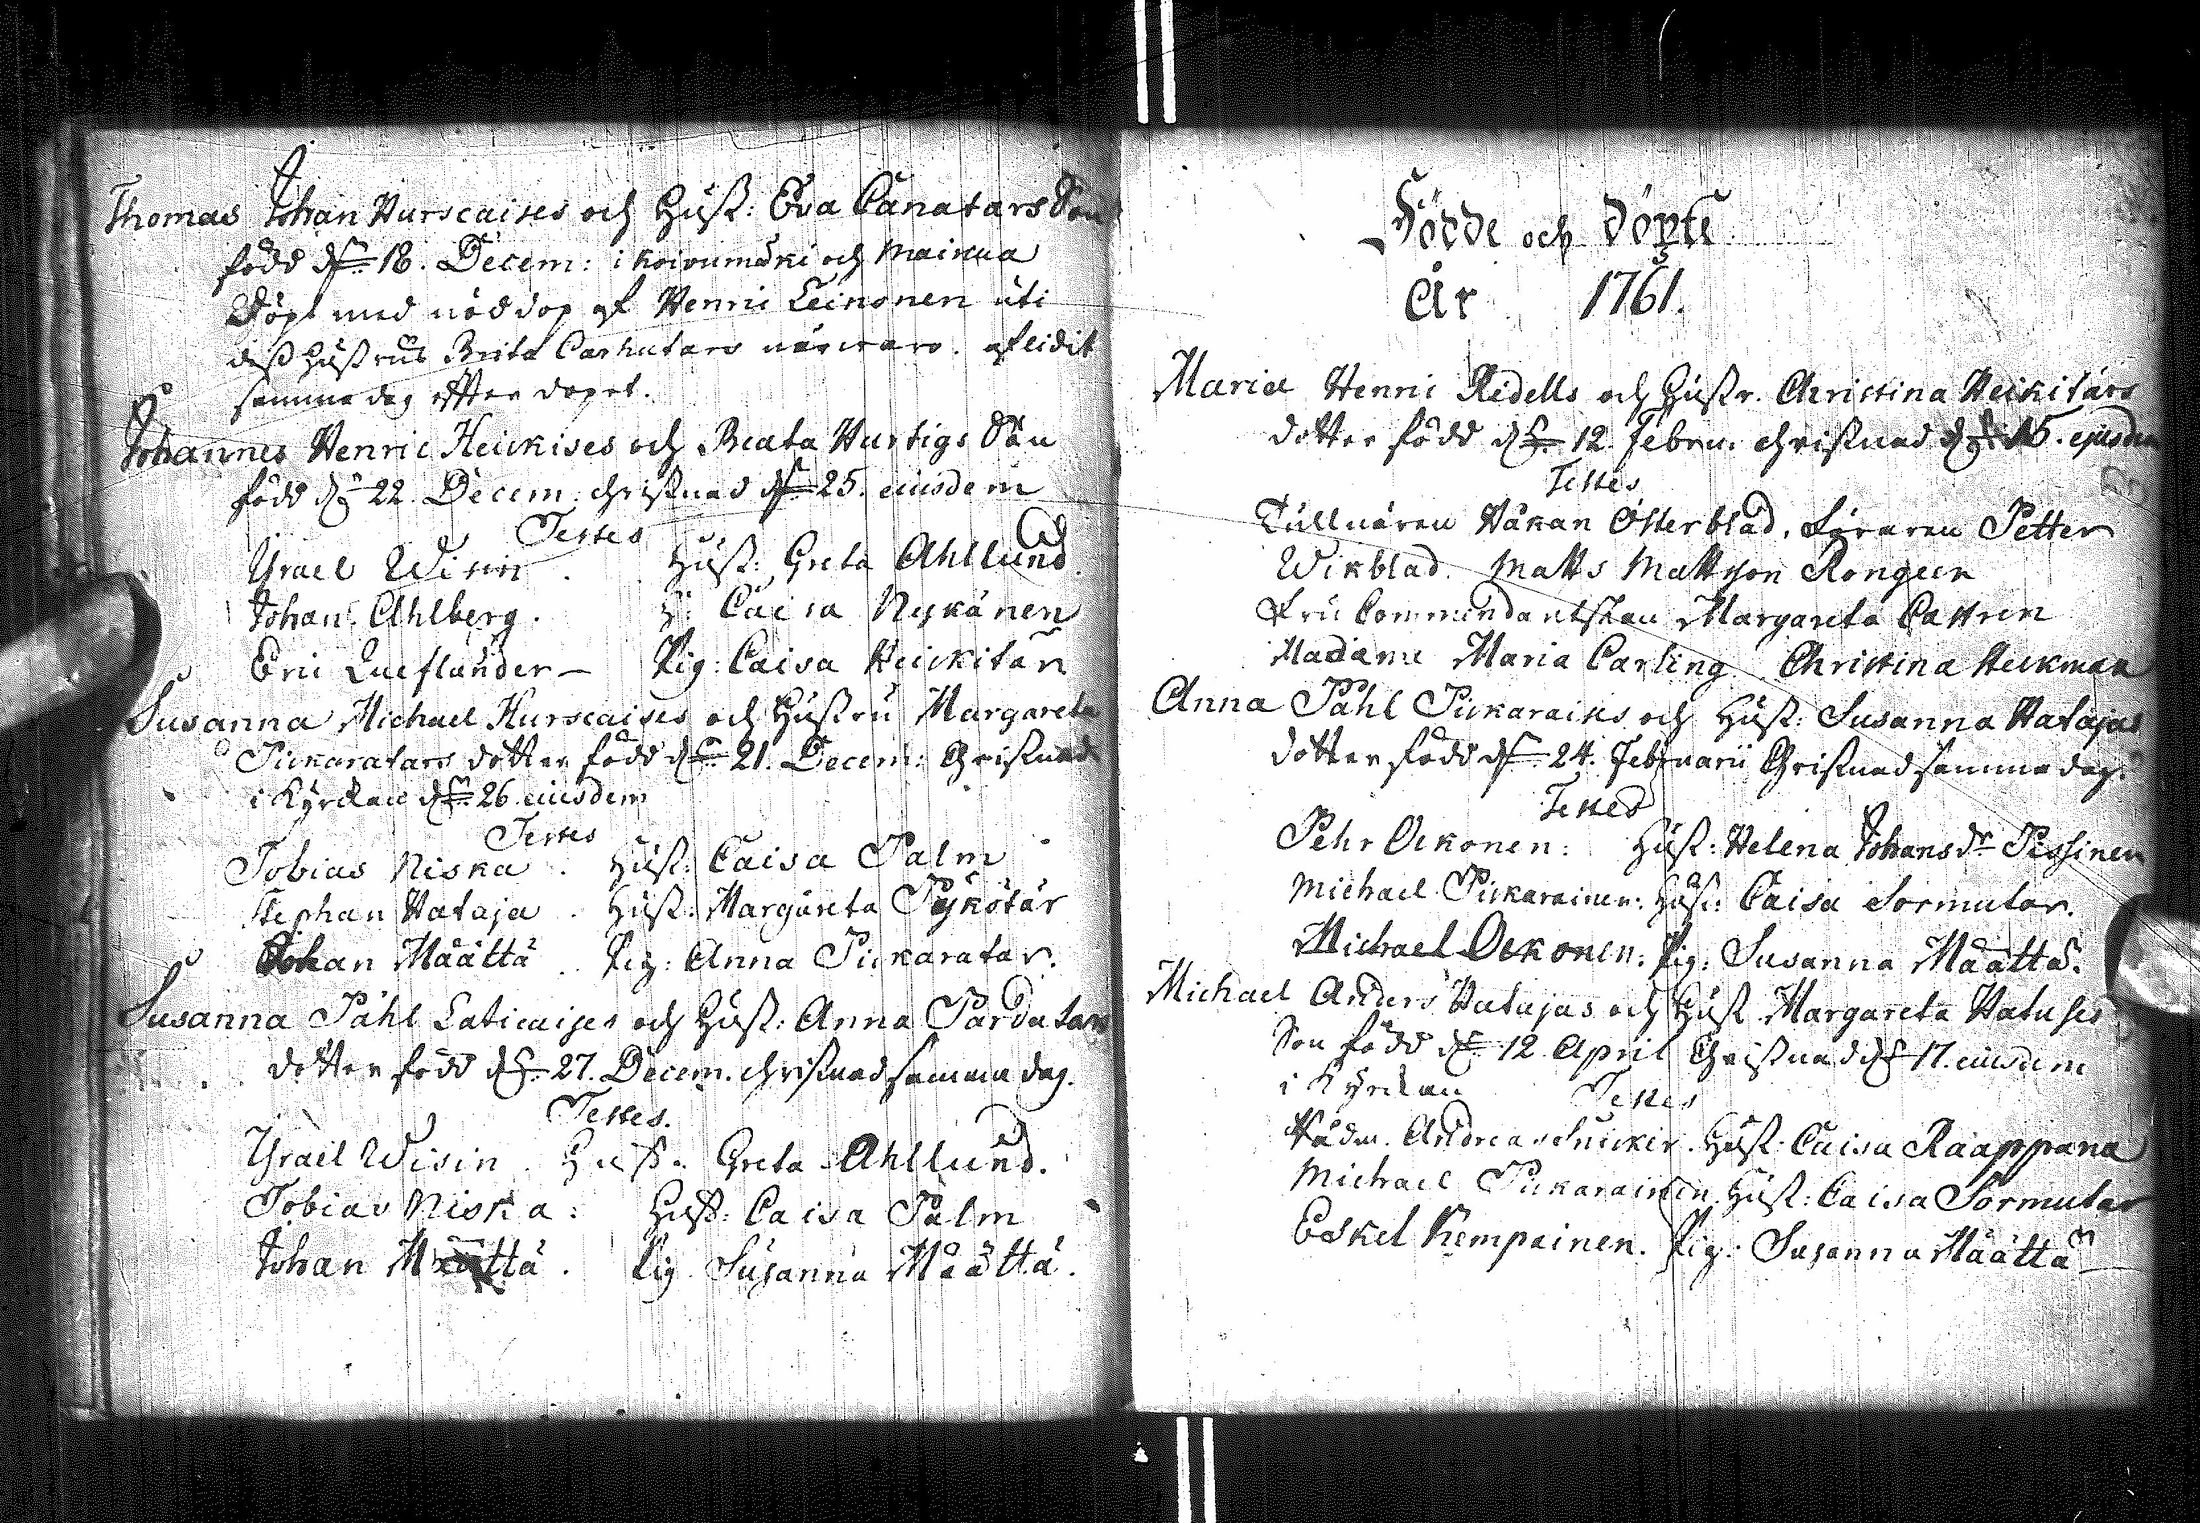 Thomas Johan Hurscaises och Hust: Eva Canatars Son
född d: 18. Decem: i Koivumäki och Mainua
Döpt med nöddop af Henric Leinonen uti
dess Hustrus Brita Carhutars närvaro. afledit
samma dag effter dopet.
Johannes Henric Heickises och Beata Hurtigs Son
född d: 22. Decem: christnad d: 25. eiusdem
Testes
Ysrael Wisin. Hust: Greta Ahllund.
Johan Ahlberg. H: Caisa Nykänen
Eric Lueflunder – Pig: Caisa Heickitär
Susanna Michael Hurscaises och Hustru Margareta
Pickaratars dotter född d: 21. Decem: Christnad
i Kyrckan d: 26 eiusdem
Testes
Tobias Niska. Hust: Caisa Palm
Stephan Hataja. Hust: Margareta Pykötär
Johan Määttä. Pig: Anna Pickaratar.
Susanna Påhl Laticaises och Hust: Anna Pardatars
dotter född d: 27. Decem. christnad samma dag.
Testes.
Ysrael Wisin. Hust: Greta Ahllund.
Tobias Niska: Hust: Caisa Palm
Johan Määttä. Pig Susanna Määttä.
Födde och Döpte
År 1761.
Maria Henric Ridells och Hustr. Christina Heikitärs
dotter född d: 12. Febru: christnad d: 15. ejusdem
Testes
Tullnären Håkan Österblad, Föraren Petter
Wikblad. Matts Mattson Rongein
Fru Commendantskan Margareta Cattren
Madame Maria Carling Christina Heckman
Anna Påhl Pickaraises och Hust: Susanna Hatajas
dotter född d: 24. Februarii Christnad samma dag.
Testes
Pehr Ockonen: Hust: Helena Johansdr Pissinen
Michael Pickarainen: Hust: Caisa Sormutar.
Michael Ockonen: Pig: Susanna Määttä.
Michael Anders Hatajas och Hust Margareta Hatuses
Son född d: 12 April Christnad d: 17. eiusdem
i Kyrckan Testes
Nådm. Andreas Snicker. Hust: Caisa Raappana
Michael Pickarainen. Hust: Caisa Sormutar
Eskel Kempainen. Pig: Susanna Määttä